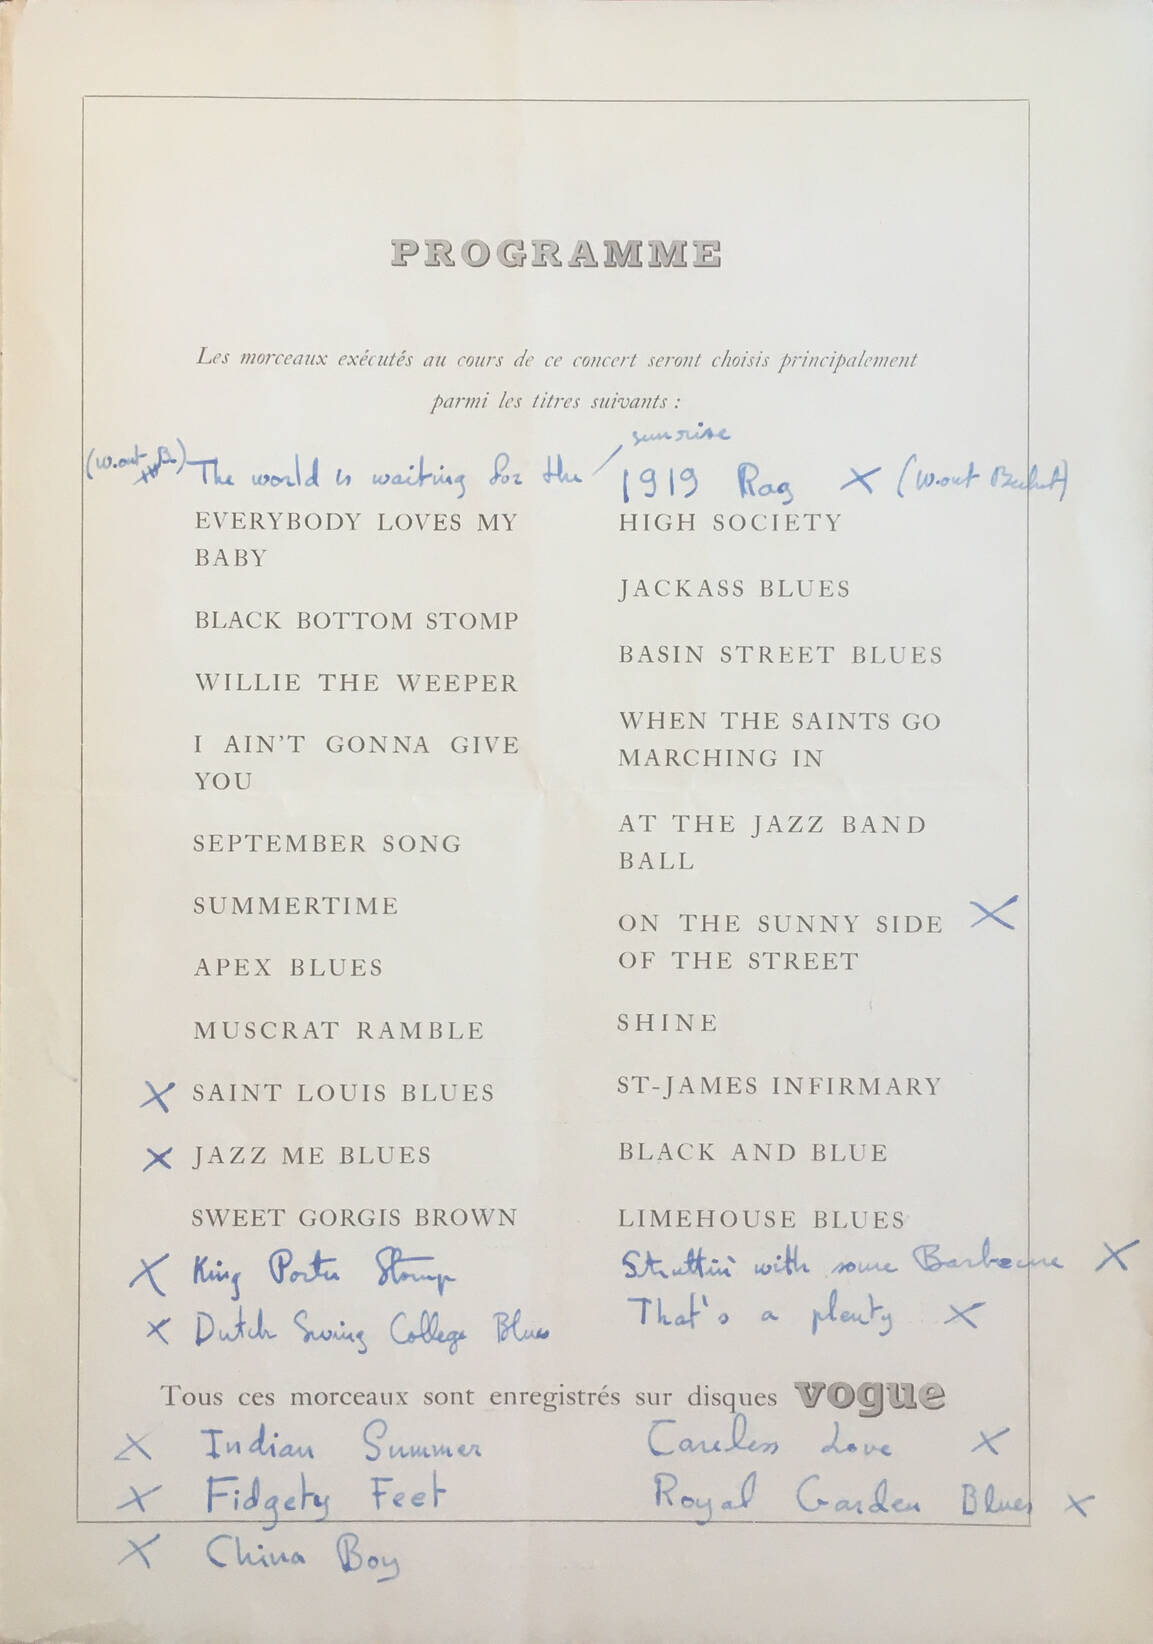 PROGRAMME
Les morceaux exécutés au cours de ce concert seront choisis principalement
parmi les titres suivants :
sunrise
(W.out B.) The world is waiting for the
EVERYBODY LOVES MY
BABY
BLACK BOTTOM STOMP
WILLIE THE WEEPER
I AIN'T GONNA GIVE
YOU
SEPTEMBER SONG
SUMMERTIME
APEX BLUES
MUSCRAT RAMBLE
X SAINT LOUIS BLUES
X JAZZ ME BLUES
SWEET GORGIS BROWN
X King Porter Stomp
X Dutch Swing College Blues
1919 Rag X (W.out Bechet)
HIGH SOCIETY
JACKASS BLUES
BASIN STREET BLUES
WHEN THE SAINTS GO
MARCHING IN
AT THE JAZZ BAND
BALL
ON THE SUNNY SIDE X
OF THE STREET
SHINE
ST-JAMES INFIRMARY
BLACK AND BLUE
LIMEHOUSE BLUES
Struttin' with some Barbecue X
That's a plenty X
Tous ces morceaux sont enregistrés sur disques vogue
X Indian Summer
X Fidgety Feet
X China Boy
Careless Love X
Royal Garden Blues X